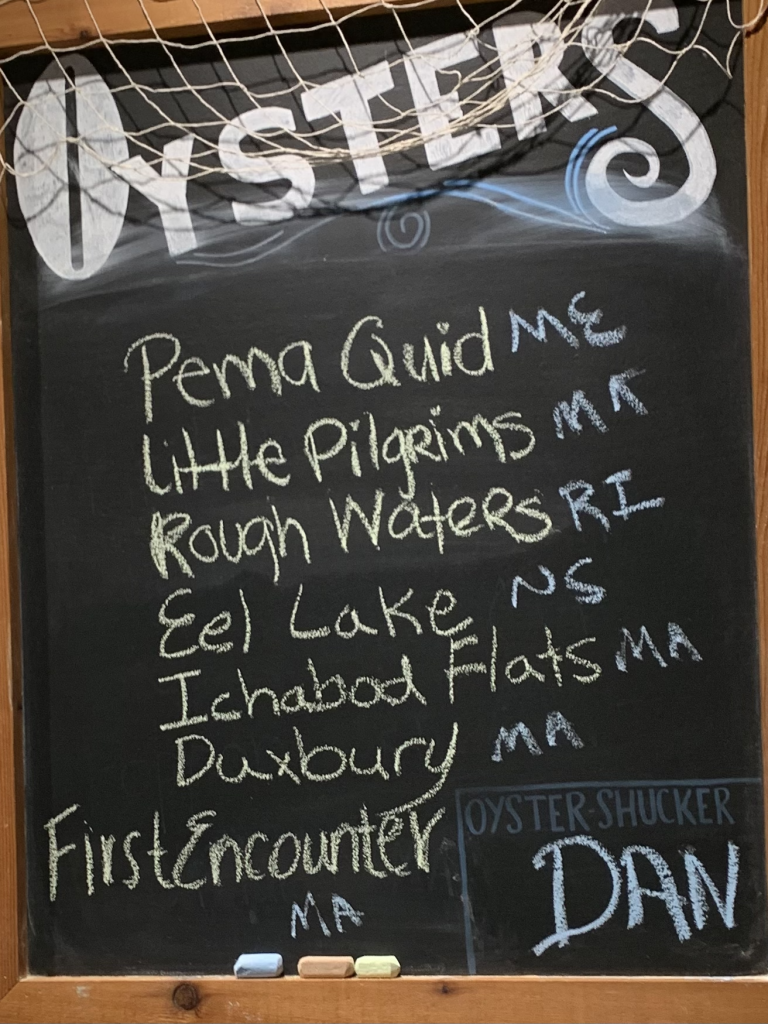 OYSTERS
Pema Quid ME
Little Pilgrims MA
Rough Waters RI
Eel Lake NS
Ichabod Flats MA
Duxbury MA
First Encounter
MA
OYSTER-SHUCKER
DAN